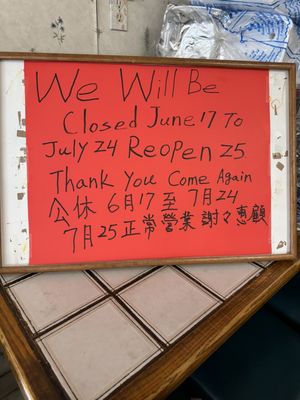 We Will Be
Closed June 17 To
July 24 Reopen 25
Thank You Come Again
公休 6月17 至 7月24
7月25 正常營業 謝々惠顧